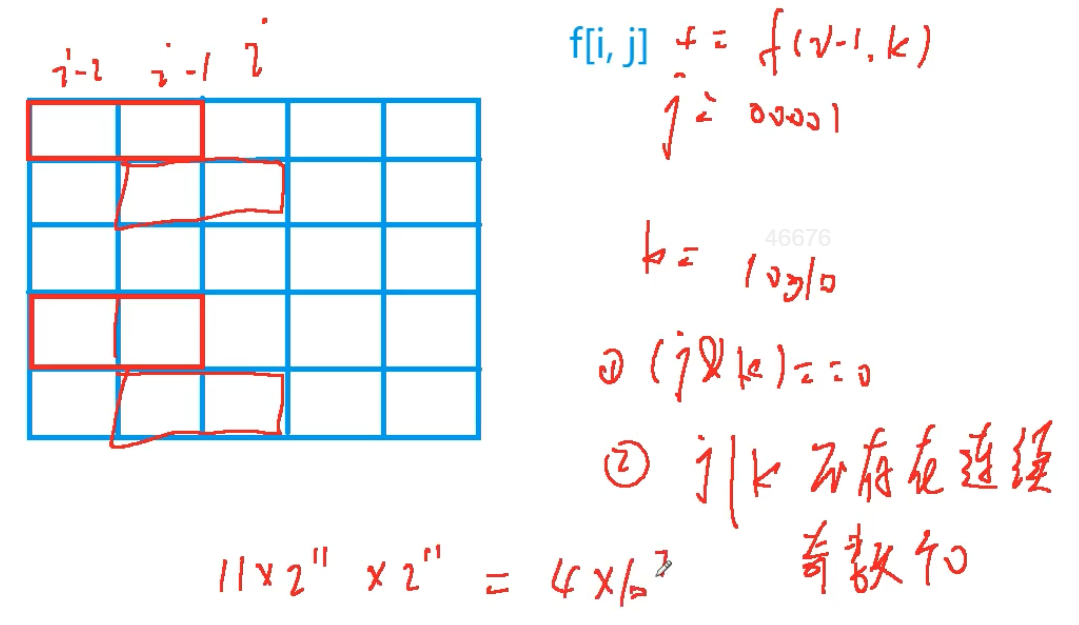 i-2 i-1 i
f[i, j] += f(i-1, k)
j = 00001
46676
k = 10010
① (j & k) == 0
② j|k 不存在连续
奇数个0
11×2^11 × 2^11 = 4×10^7